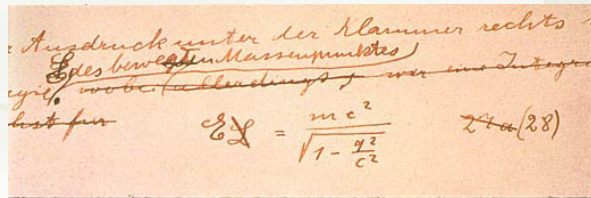 Ausdruck unter der Klammer rechts
E des bewegten Massenpunktes
gie, wobei (allerdings, wir eine Integra
chst für
E L = mc² / √(1 - q²/c²) 27a (28)